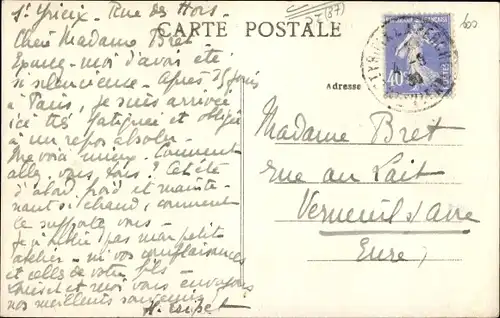 St Yrieix. Rue des Hors
CARTE POSTALE
Chère Madame Bret
Excusez-moi d'avoir été
si silencieuse. Après 15 jours
à Paris, je suis arrivée
ici très fatiguée et obligée
à un repos absolu.
Me voià mieux. Comment
allez-vous, tous ? Cet été
d'abord froid et mainte-
nant si chaud, comment
le supportez vous -
Je n'oublie pas mon petit
atelier - ni vos complaisances
et celles de votre fils -
et moi vous envoyons
nos meilleurs souvenirs
(87)
Adresse
40
Madame Bret
rue au Lait
Verneuil s/ Avre
Eure